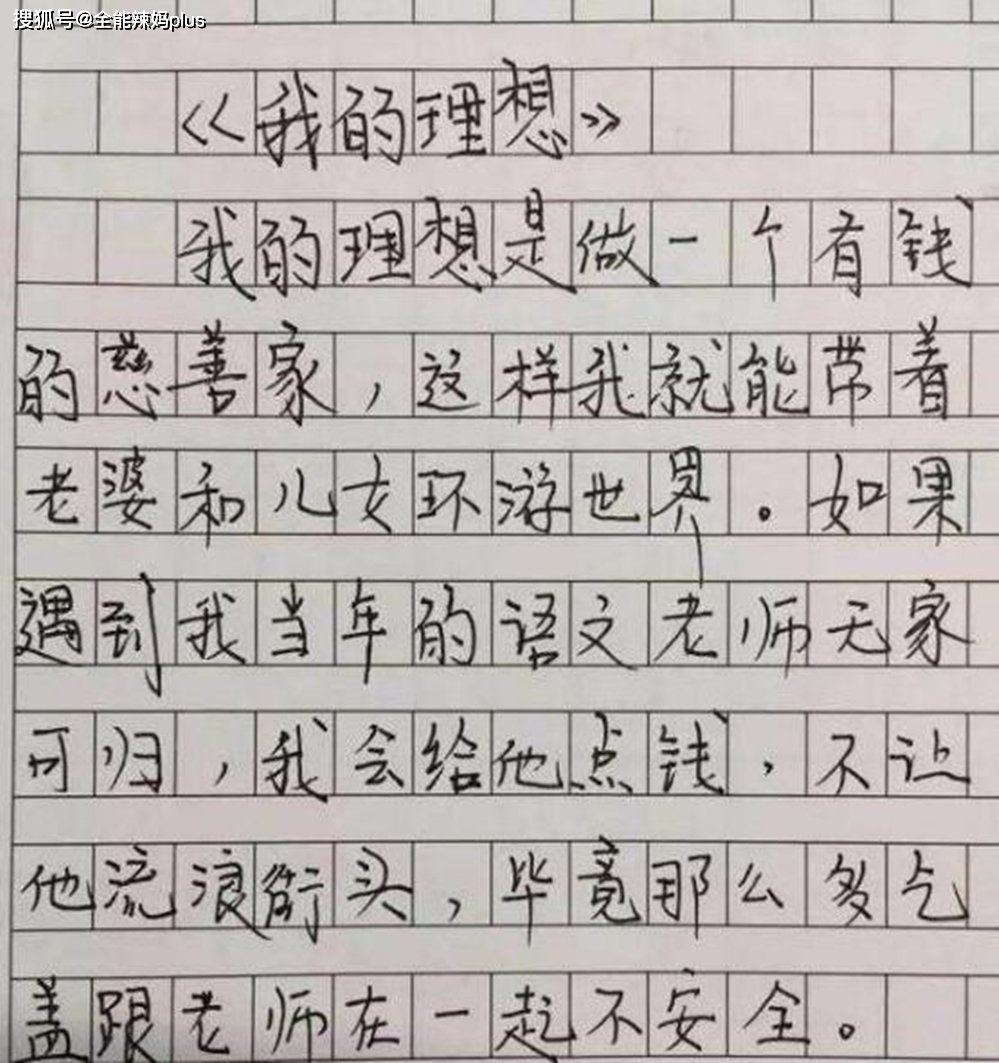 搜狐号@全能辣妈plus
《我的理想》
我的理想是做一个有钱
的慈善家，这样我就能带着
老婆和儿女环游世界。如果
遇到我当年的语文老师无家
可归，我会给他点钱，不让
他流浪街头，毕竟那么多乞
盖跟老师在一起不安全。